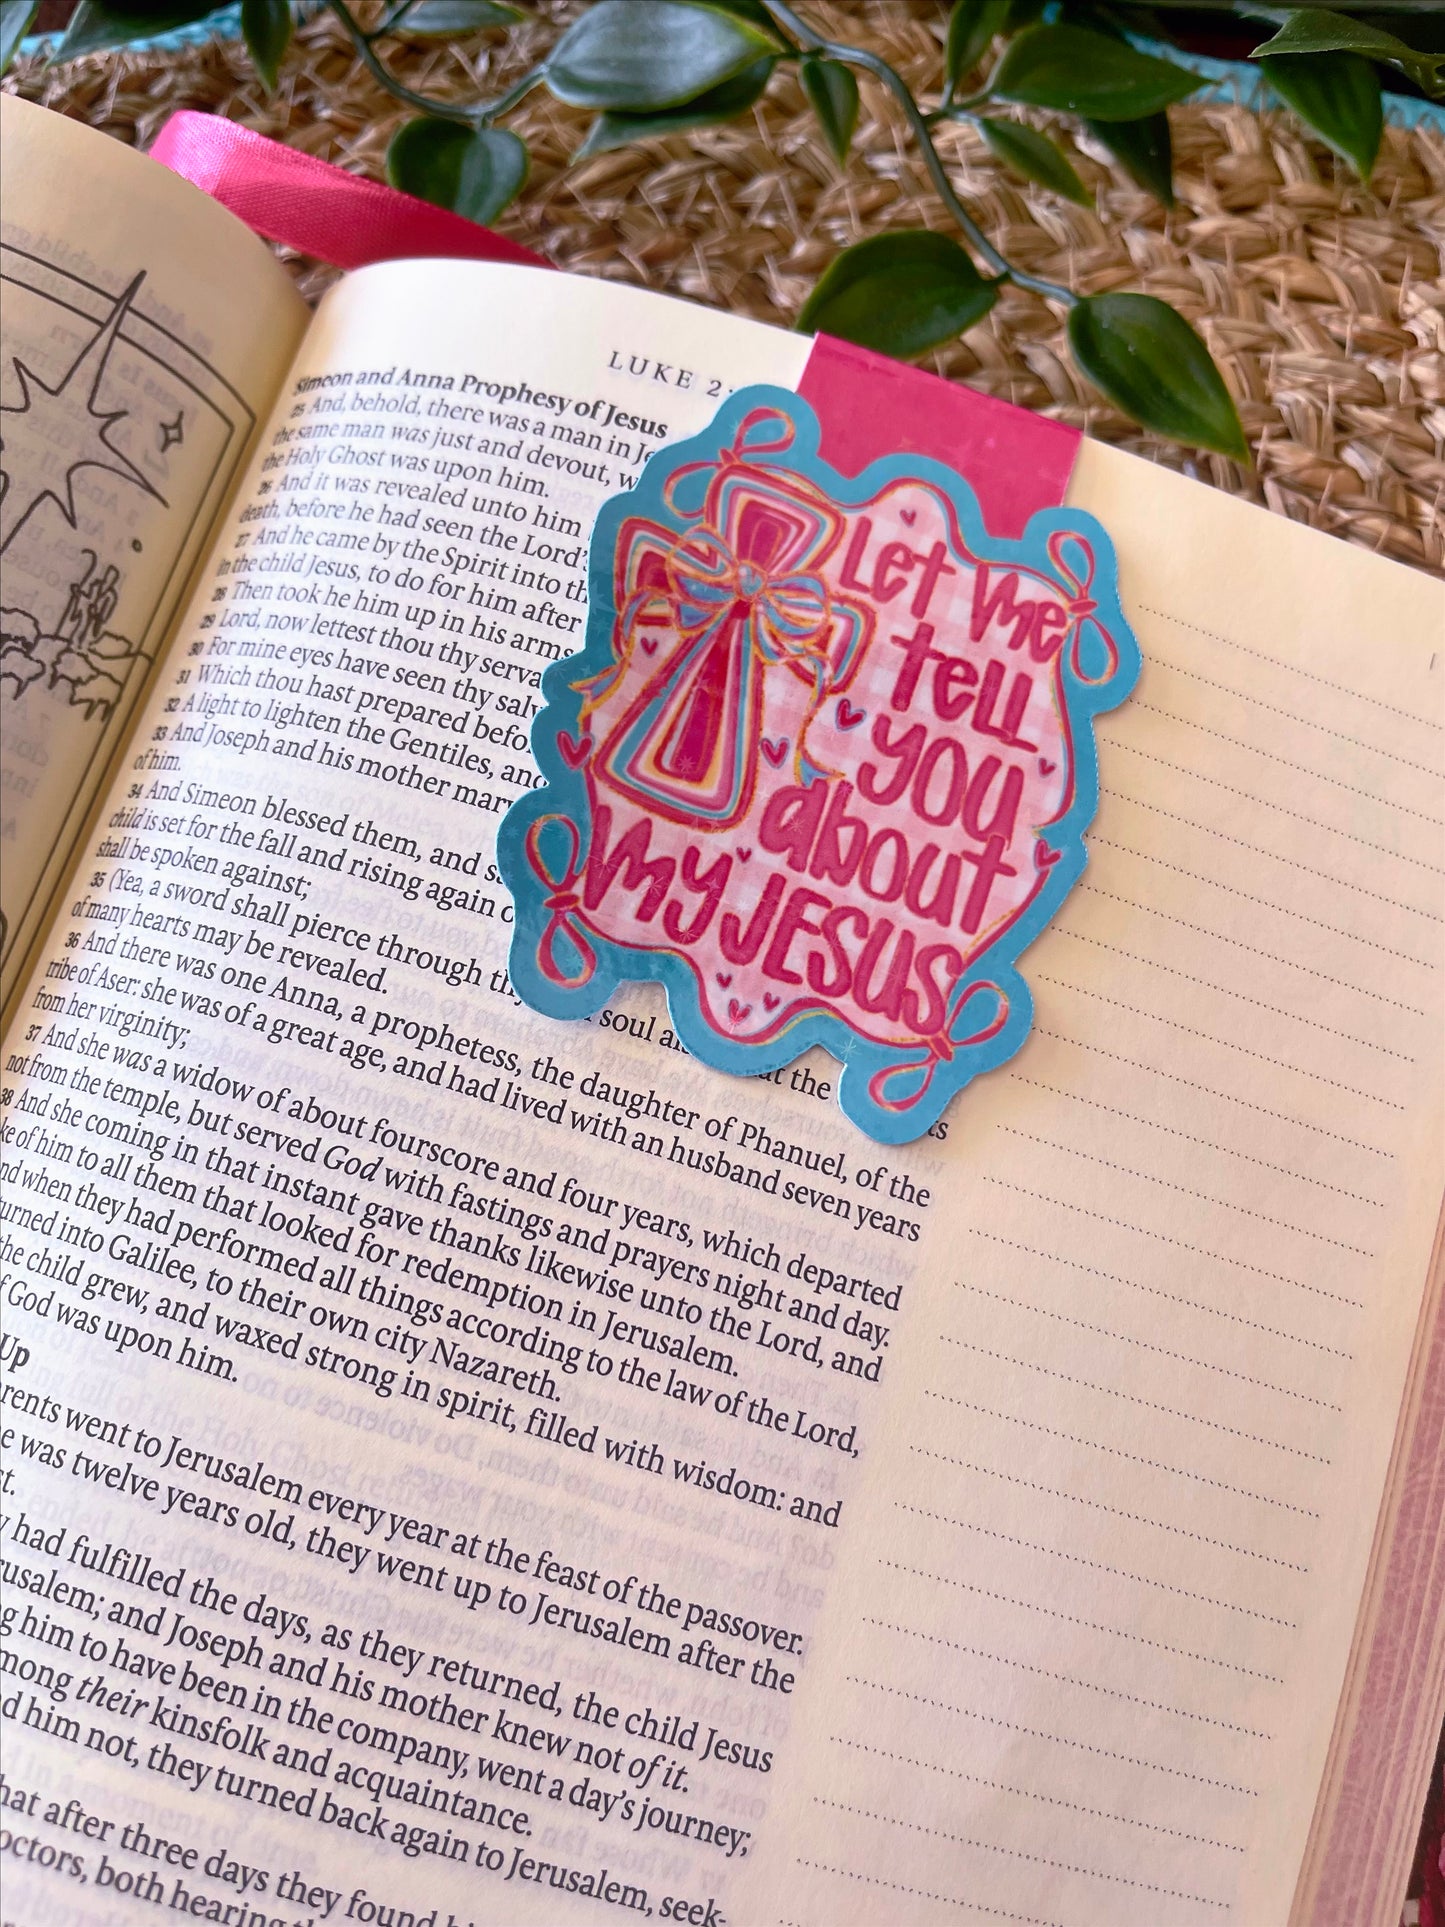 LUKE 2:
Simeon and Anna Prophesy of Jesus
25 And, behold, there was a man in Je
the same man was just and devout, w
the Holy Ghost was upon him.
26 And it was revealed unto him
death, before he had seen the Lord's
27 And he came by the Spirit into th
in the child Jesus, to do for him after
28 Then took he him up in his arms
29 Lord, now lettest thou thy serva
30 For mine eyes have seen thy salv
31 Which thou hast prepared befo
32 A light to lighten the Gentiles, and
33 And Joseph and his mother marv
of him.
34 And Simeon blessed them, and s
child is set for the fall and rising again o
shall be spoken against;
35 (Yea, a sword shall pierce through thy soul al at the
of many hearts may be revealed.
36 And there was one Anna, a prophetess, the daughter of Phanuel, of the
tribe of Aser: she was of a great age, and had lived with an husband seven years
from her virginity;
37 And she was a widow of about fourscore and four years, which departed
not from the temple, but served God with fastings and prayers night and day.
38 And she coming in that instant gave thanks likewise unto the Lord, and
ke of him to all them that looked for redemption in Jerusalem.
nd when they had performed all things according to the law of the Lord,
turned into Galilee, to their own city Nazareth.
the child grew, and waxed strong in spirit, filled with wisdom: and
f God was upon him.
Up
rents went to Jerusalem every year at the feast of the passover.
e was twelve years old, they went up to Jerusalem after the
st.
y had fulfilled the days, as they returned, the child Jesus
rusalem; and Joseph and his mother knew not of it.
g him to have been in the company, went a day's journey;
mong their kinsfolk and acquaintance.
d him not, they turned back again to Jerusalem, seek-
hat after three days they found hi
octors, both hearing th
Let me
tell
you
about
my JESUS